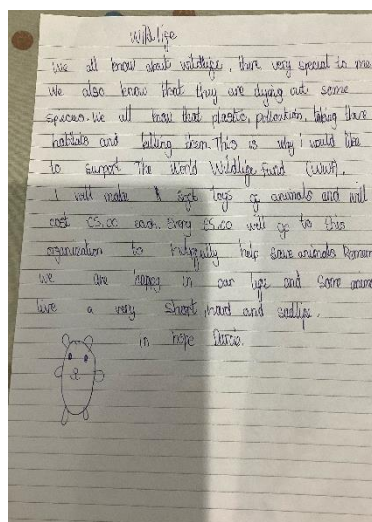 Wildlife
We all know about wildlife, there very special to me
We also know that they are dying out some
species. We all know that plastic, pollution, taking there
habitats and killing them. This is why i would like
to support The World Wildlife fund (WWF).
I will make soft toys of animals and will
cost £5.00 each. Every £5.00 will go to this
organization to help save animals
we are happy in our life and some
live a very short, hard and sadlife.
in hope Darcie.